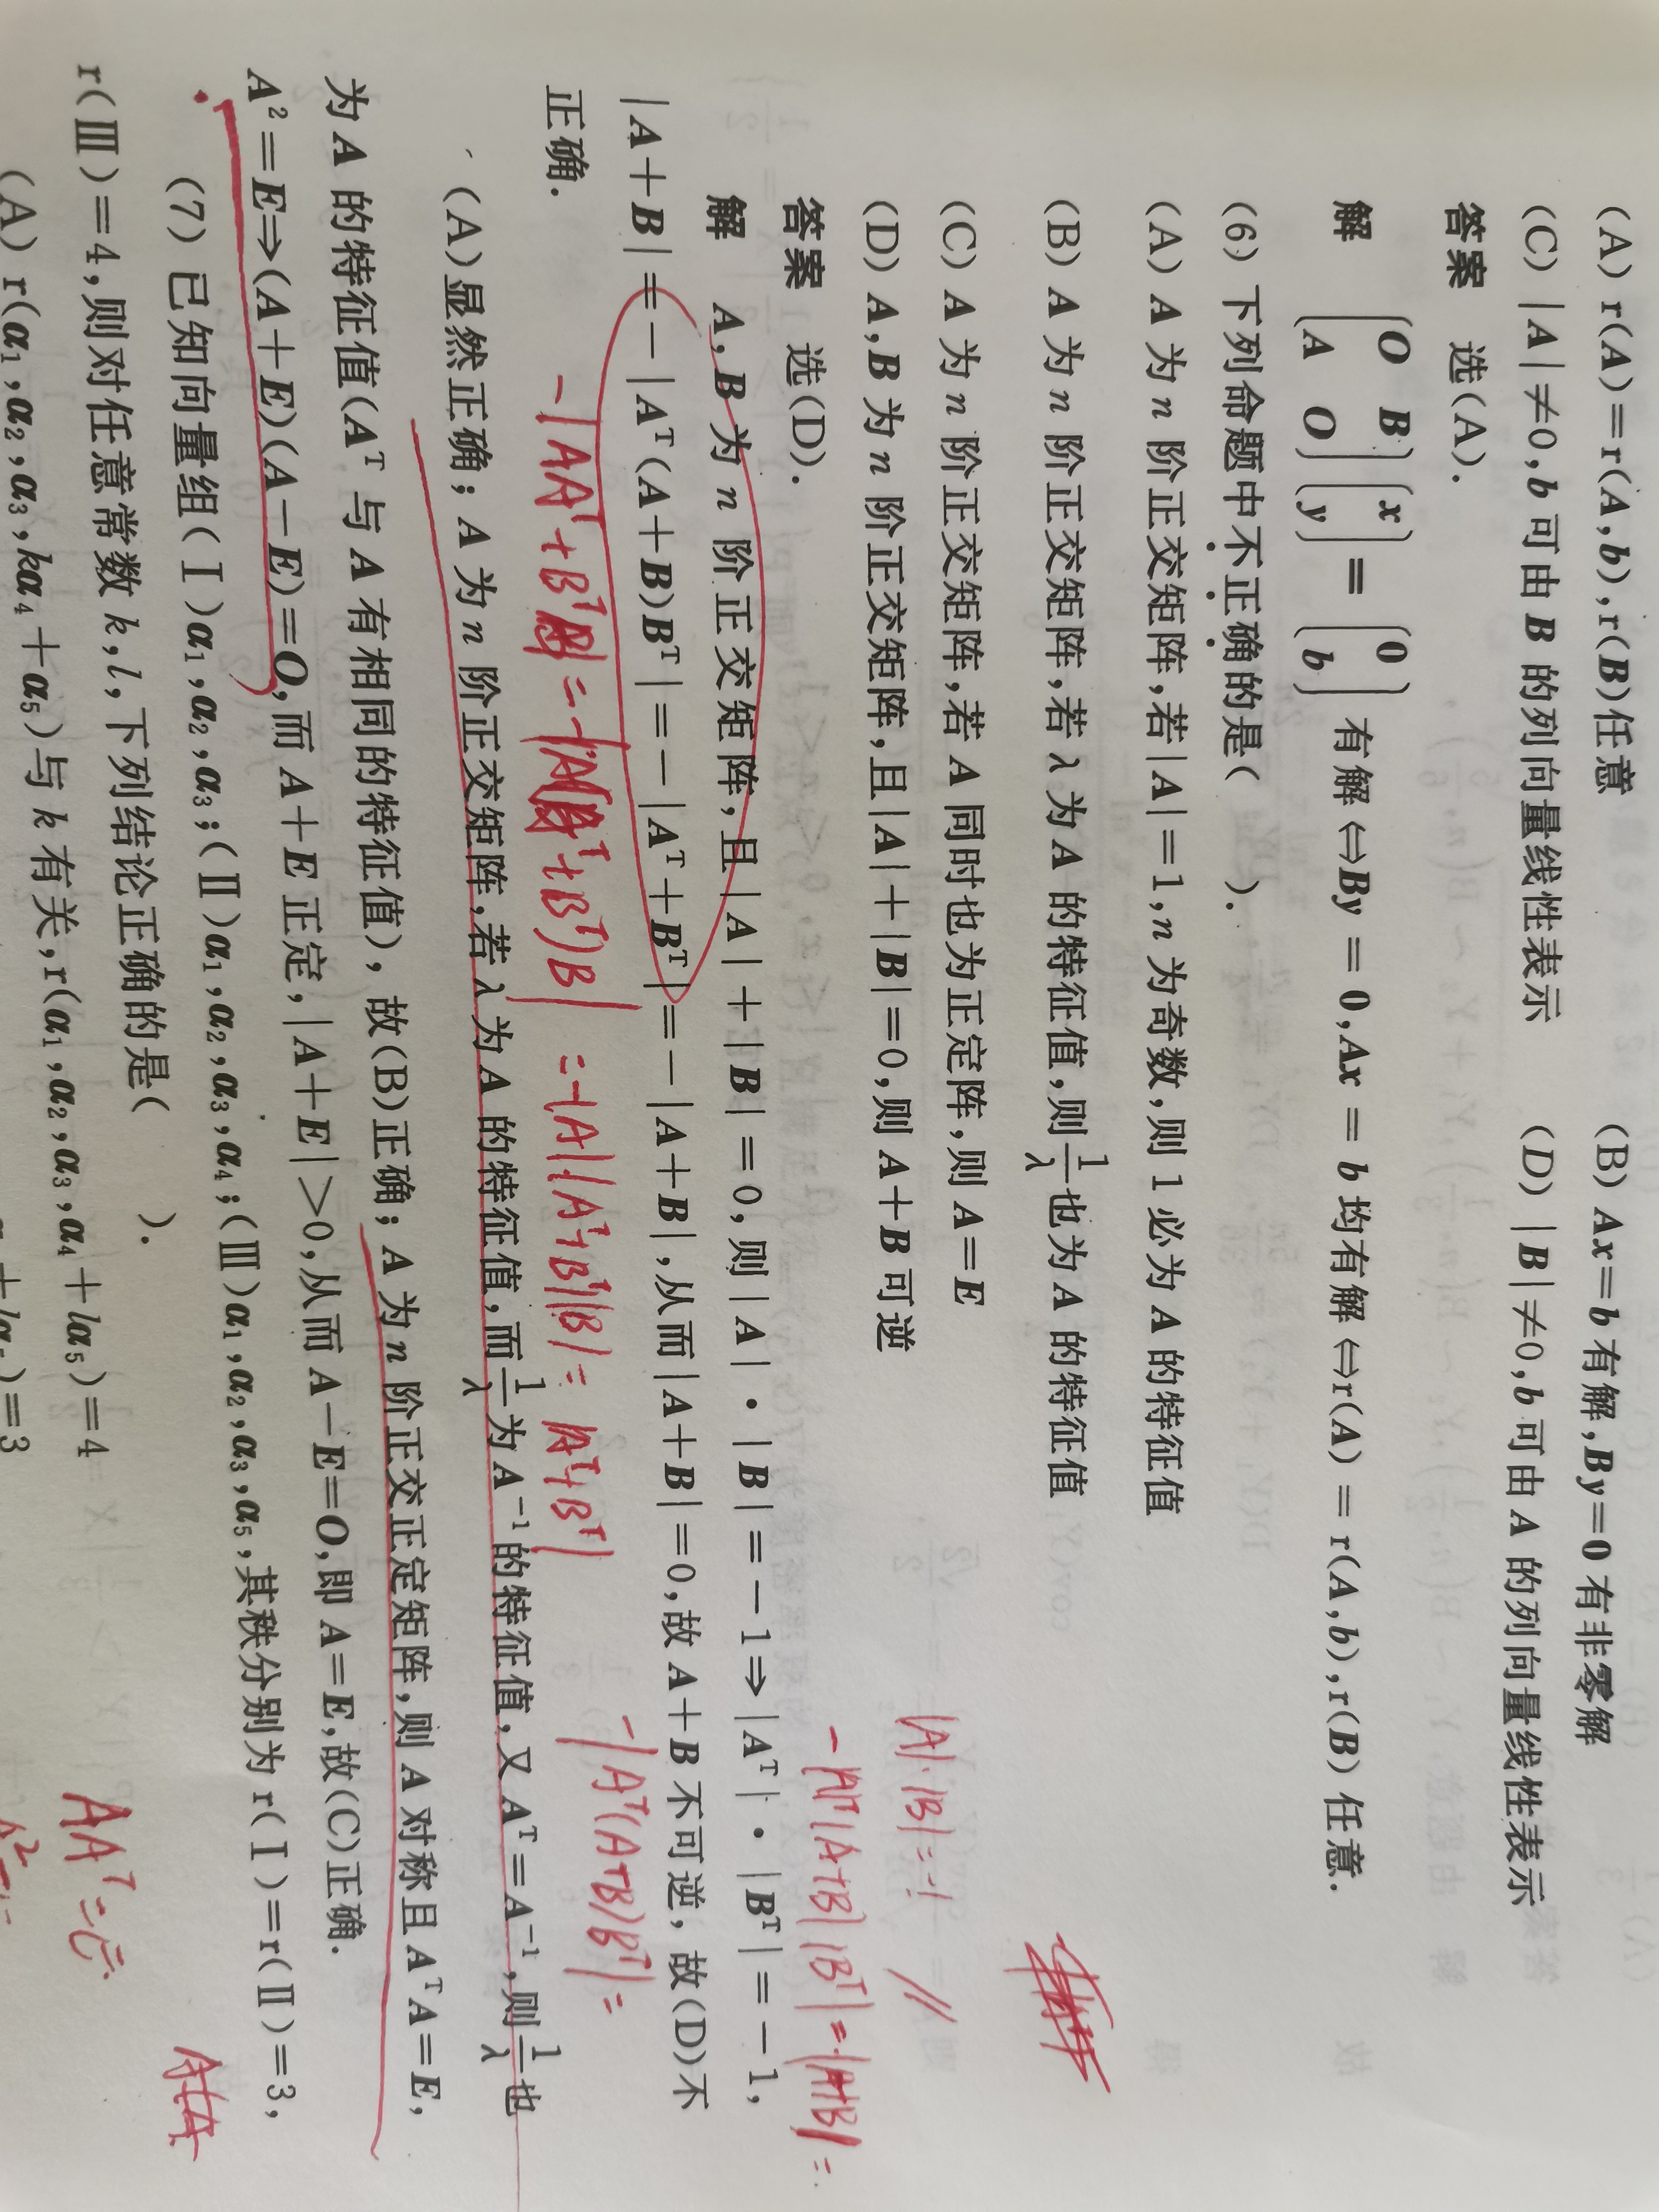 (A) r(A)=r(A,b),r(B)任意 (B) Ax=b 有解,By=0 有非零解
(C) |A|≠0,b 可由 B 的列向量线性表示 (D) |B|≠0,b 可由 A 的列向量线性表示
答案 选(A).
解 (O B A O)(x y) = (0 b) 有解⇔By = 0,Ax = b 均有解⇔r(A) = r(A,b),r(B) 任意.
(6) 下列命题中不正确的是( ).
(A) A 为 n 阶正交矩阵,若|A|=1,n 为奇数,则 1 必为 A 的特征值
(B) A 为 n 阶正交矩阵,若 λ 为 A 的特征值,则1/λ也为 A 的特征值
(C) A 为 n 阶正交矩阵,若 A 同时也为正定阵,则 A=E
(D) A,B 为 n 阶正交矩阵,且|A|+|B|=0,则 A+B 可逆
|A|·|B|=-1
答案 选(D).
-|A^T||A+B||B^T|=|A+B|=
解 A,B 为 n 阶正交矩阵,且|A|+|B|=0,则|A|·|B|=-1⇒|A^T|·|B^T|=-1,
|A+B|=-|A^T(A+B)B^T|=-|A^T+B^T|=-|A+B|,从而|A+B|=0,故 A+B 不可逆,故(D)不
正确.
-|A^T(A+B)B^T|=
=-|A||A^T+B^T||B|=|A^T+B^T|
(A)显然正确;A 为 n 阶正交矩阵,若 λ 为 A 的特征值,而1/λ为 A^-1的特征值,又 A^T=A^-1,则1/λ也
为 A 的特征值(A^T 与 A 有相同的特征值),故(B)正确;A 为 n 阶正交正定矩阵,则 A 对称且 A^T A=E,
A²=E⇒(A+E)(A-E)=O,而 A+E 正定,|A+E|>0,从而 A-E=O,即 A=E,故(C)正确.
(7) 已知向量组(Ⅰ)α₁,α₂,α₃;(Ⅱ)α₁,α₂,α₃,α₄;(Ⅲ)α₁,α₂,α₃,α₅,其秩分别为 r(Ⅰ)=r(Ⅱ)=3,
r(Ⅲ)=4,则对任意常数 k,l,下列结论正确的是( ).
AA^T=E
(A) r(α₁,α₂,α₃,kα₄+α₅)与 k 有关,r(α₁,α₂,α₃,α₄+lα₅)=4